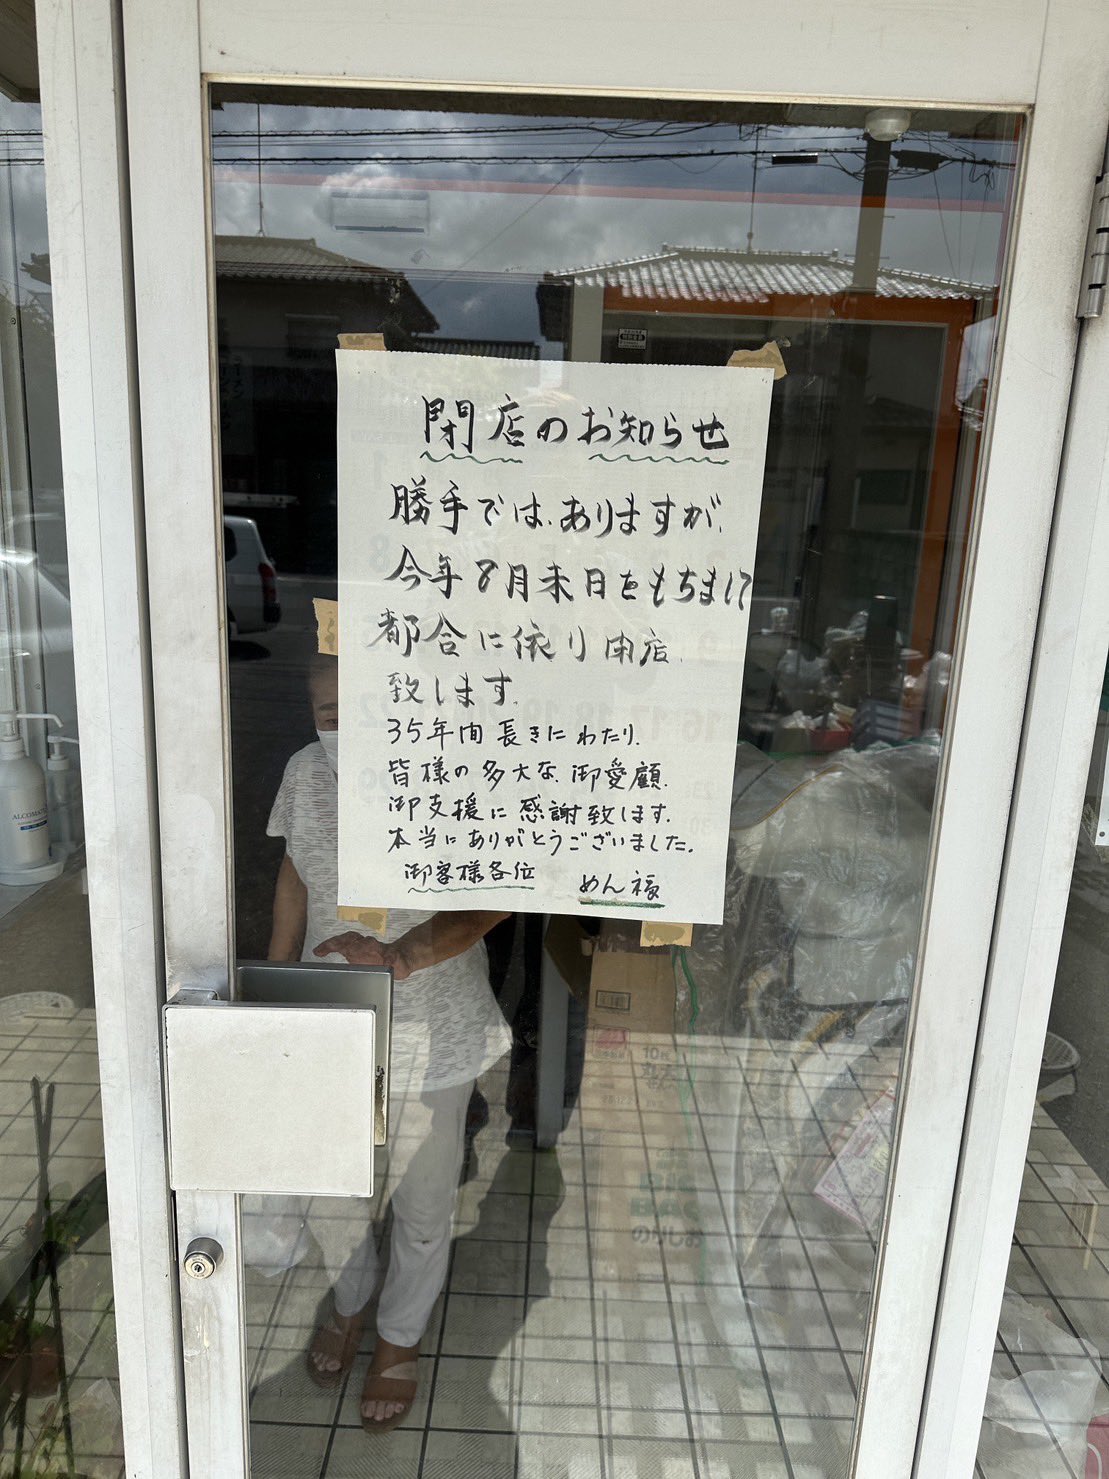 閉店のお知らせ
勝手では、ありますが、
今年8月末日をもちまして
都合に依り閉店
致します。
35年間長きにわたり、
皆様の多大な御愛顧、
御支援に感謝致します。
本当にありがとうございました。
御客様各位 めん福
ALCOMA